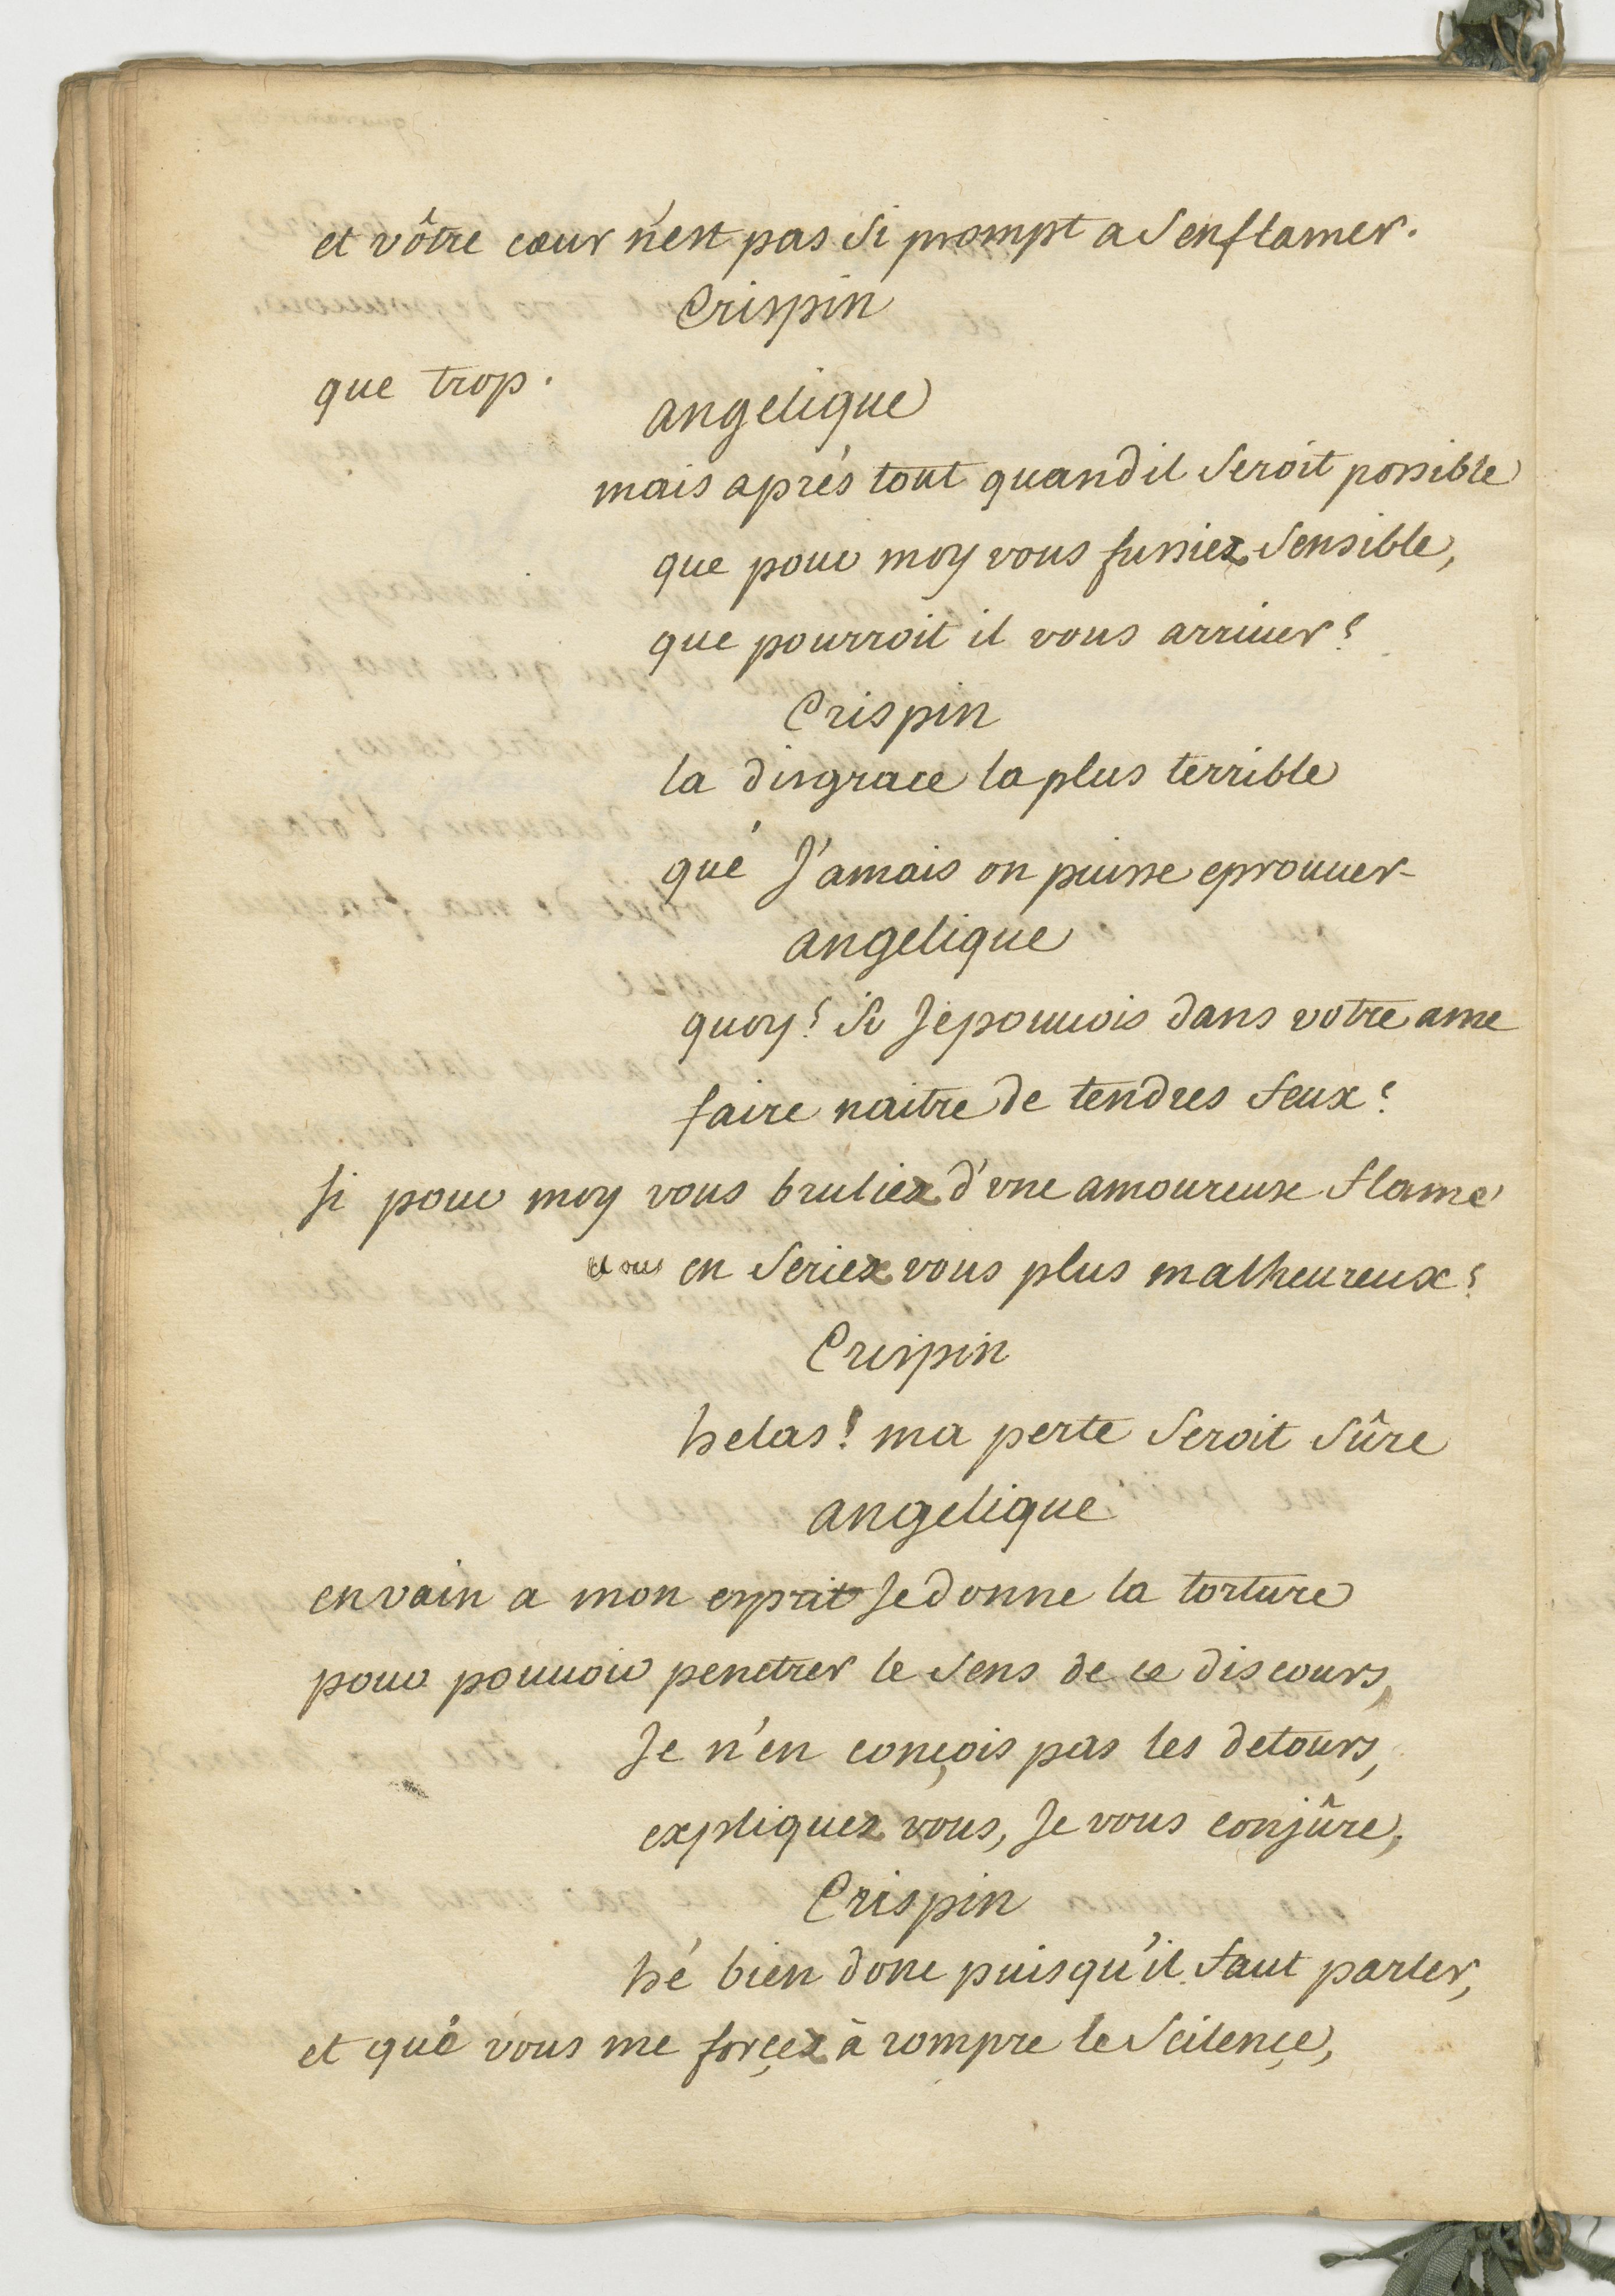 et vôtre cœur n'est pas si prompt a s'enflamer.
Crispin
que trop.
angelique
mais aprés tout quand il seroit possible
que pour moy vous fussiez sensible,
que pourroit il vous arriuer?
Crispin
la disgrace la plus terrible
qué J'amais on puisse eprouuer
angelique
quoy? si Je pouuois dans votre ame
faire naitre de tendres feux?
si pour moy vous bruliez d'vne amoureuse flame
en seriez vous plus malheureux?
Crispin
helas! ma perte seroit sûre
angelique
envain a mon esprit Je donne la torture
pour pouuoir penetrer le sens de ce discours,
Je n'en conçois pas les detours,
expliquez vous, Je vous conjûre,
Crispin
hé bien donc puisqu'il faut parler,
et qué vous me forçez à rompre le scilençe,